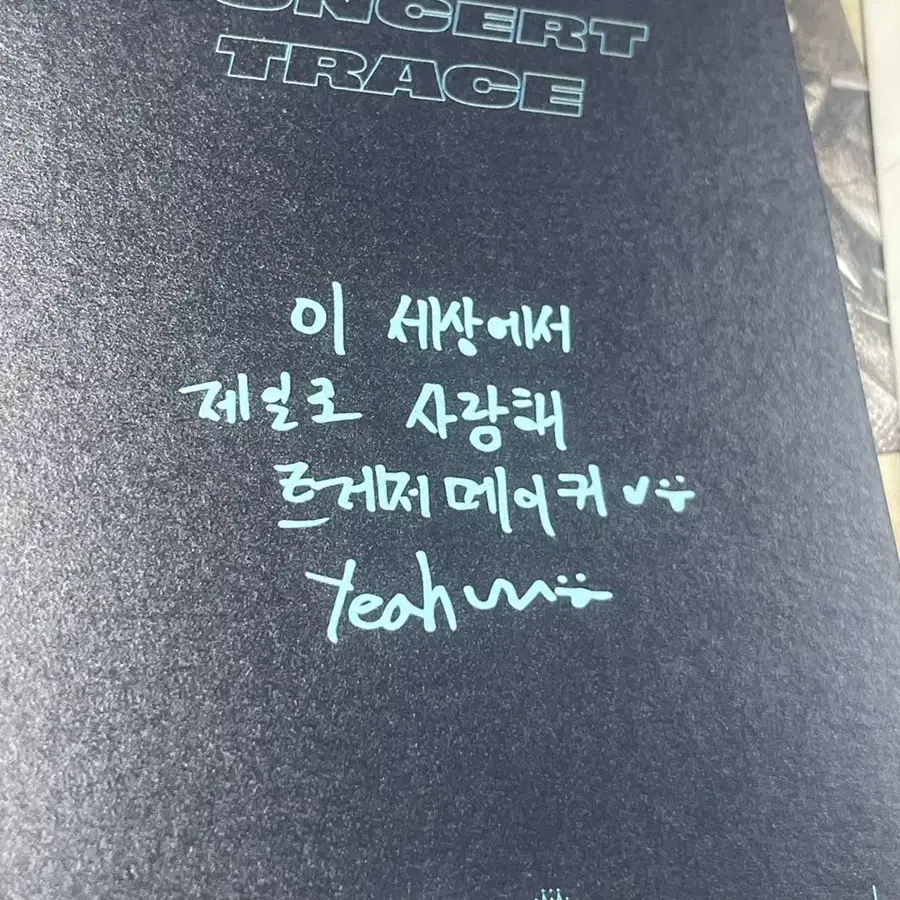 ONCERT
TRACE
이 세상에서
제일로 사랑해
트레저메이커
Yeah